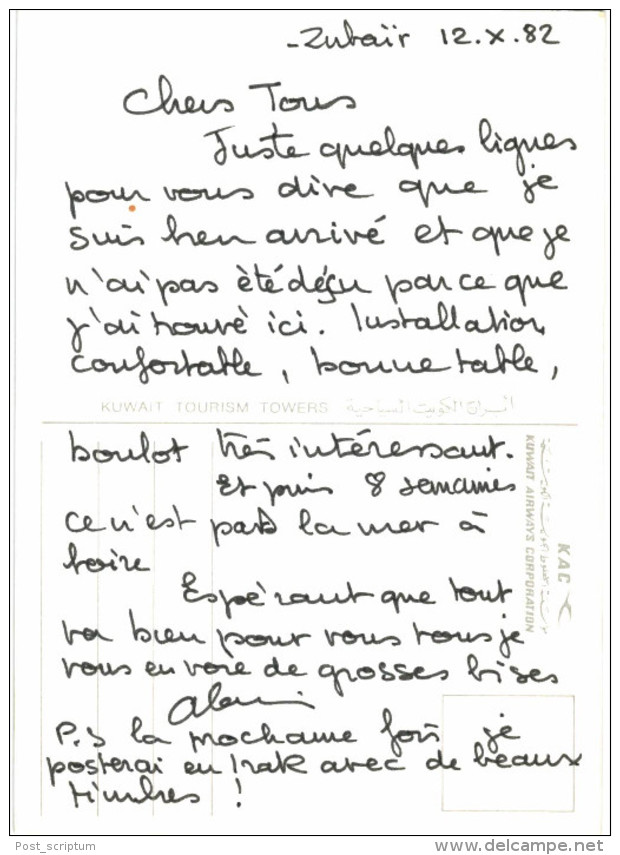 -Zubaïr 12.X.82
Chers Tous
Juste quelques lignes
pour vous dire que je
suis bien arrivé et que je
n'ai pas été déçu par ce que
j'ai trouvé ici. Installation
confortable, bonne table,
KUWAIT TOURISM TOWERS ابراج الكويت السياحية
boulot très intéressant.
Et puis 8 semaines
ce n'est pas la mer à
boire
Espérant que tout
va bien pour vous tous je
vous envoie de grosses bises
Alain
P.S la prochaine fois je
posterai en Irak avec de beaux
timbres !
KUWAIT AIRWAYS CORPORATION
KAC
Post_scriptum
delcampe.net